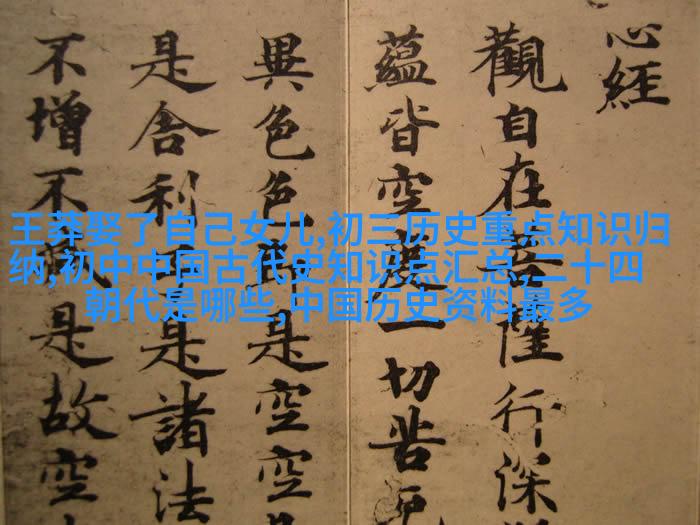 心經
觀自在菩薩行深
蘊皆空度一切苦厄
異色色即是空空
是舍利子是諸法
不增不減是故空
王莽娶了自己女儿,初三历史重点知识归
纳,初中中国古代史知识点汇总,二十四
朝代是哪些,中国历史资料最多